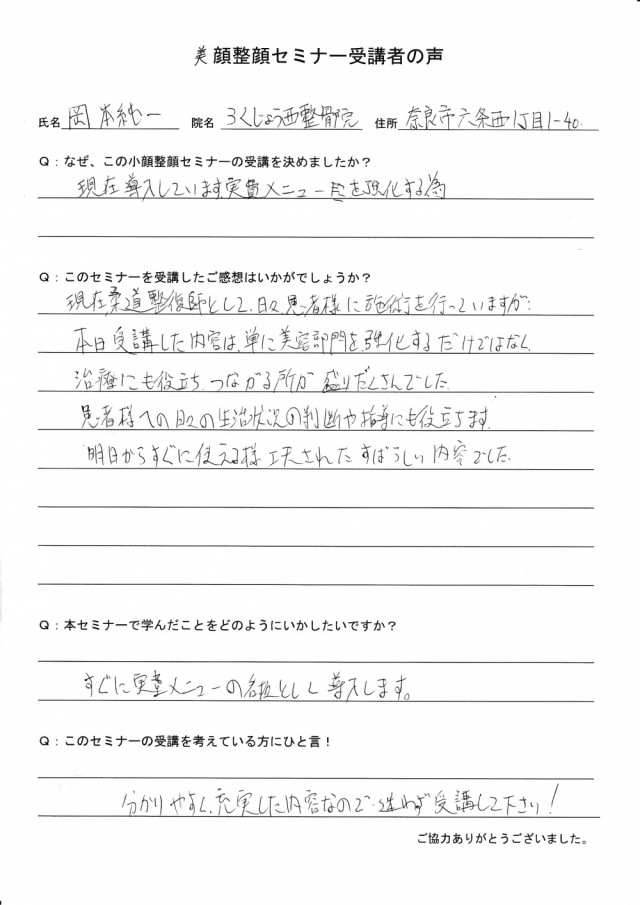 美顔整顔セミナー受講者の声
氏名 岡本純一 院名 ろくじょう西整骨院 住所 奈良市六条西1丁目1-40.
Q：なぜ、この小顔整顔セミナーの受講を決めましたか？
現在導入しています、実費メニューを強化する為
Q：このセミナーを受講したご感想はいかがでしょうか？
現在、柔道整復師として、日々、患者様に施術を行っていますが、
本日受講した内容は、単に美容部門を強化するだけではなく、
治療にも役立ち、つながる所が盛りだくさんでした。
患者様への日々の生活状況の判断や指導にも役立ちます。
明日からすぐに使える様工夫されたすばらしい内容でした。
Q：本セミナーで学んだことをどのようにいかしたいですか？
すぐに実費メニューの名板として導入します。
Q：このセミナーの受講を考えている方にひと言！
分かりやすく、充実した内容なので、迷わず受講して下さい！
ご協力ありがとうございました。